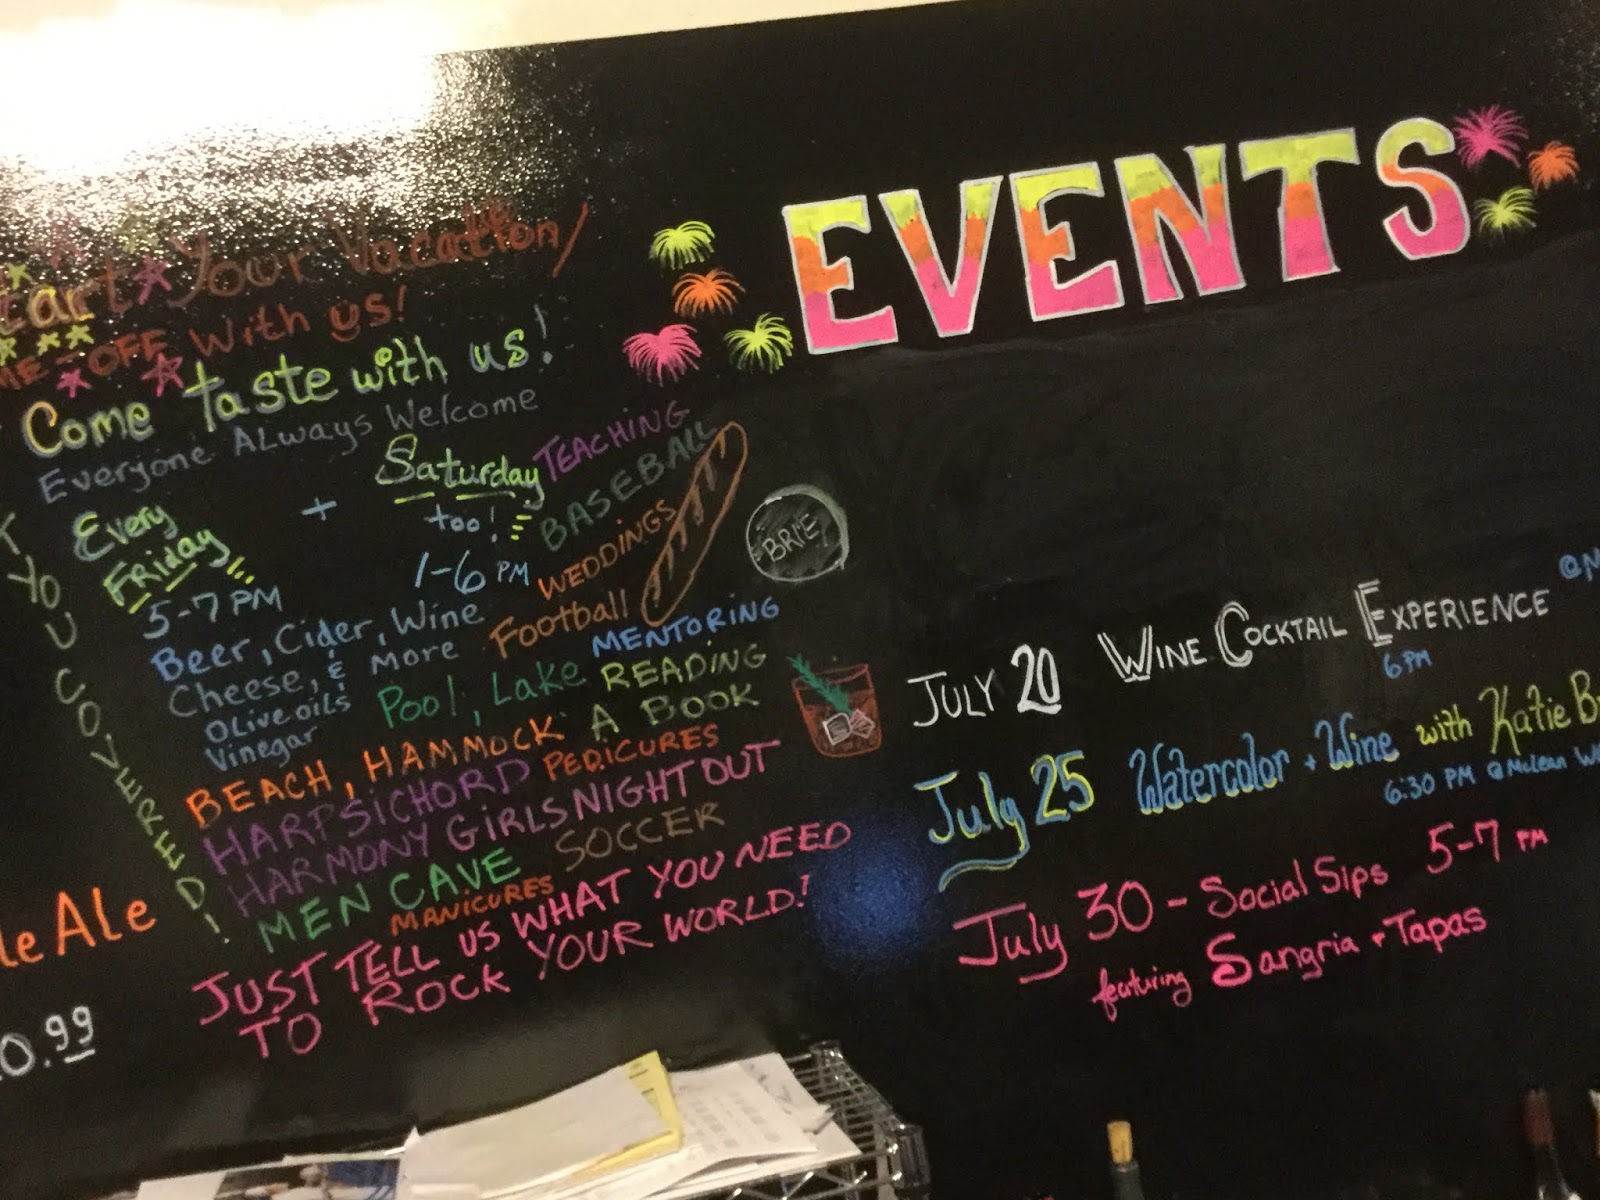 Start Your Vacation/
TIME-OFF With us!
Come taste with us!
Everyone Always Welcome
Every
FRiday
5-7 PM
+
Saturday
too!
1-6 PM
Beer, Cider, Wine
Cheese, & More
Olive oils
Vinegar
TEACHING
BASEBALL
WEDDINGS
Football
BRIE
MENTORING
Pool, Lake
READING
A BOOK
BEACH, HAMMOCK
HARPSICHORD PEDICURES
HARMONY GIRLS NIGHT OUT
MEN CAVE SOCCER
MANICURES
JUST TELL US WHAT YOU NEED
TO ROCK YOUR WORLD!
YOU COVERED!
Ale
0.99
EVENTS
JULY 20 WINE COCKTAIL EXPERIENCE
6 PM
July 25 Watercolor + Wine with Katie
6:30 PM @ McLean
July 30 - Social Sips 5-7 PM
featuring Sangria + Tapas